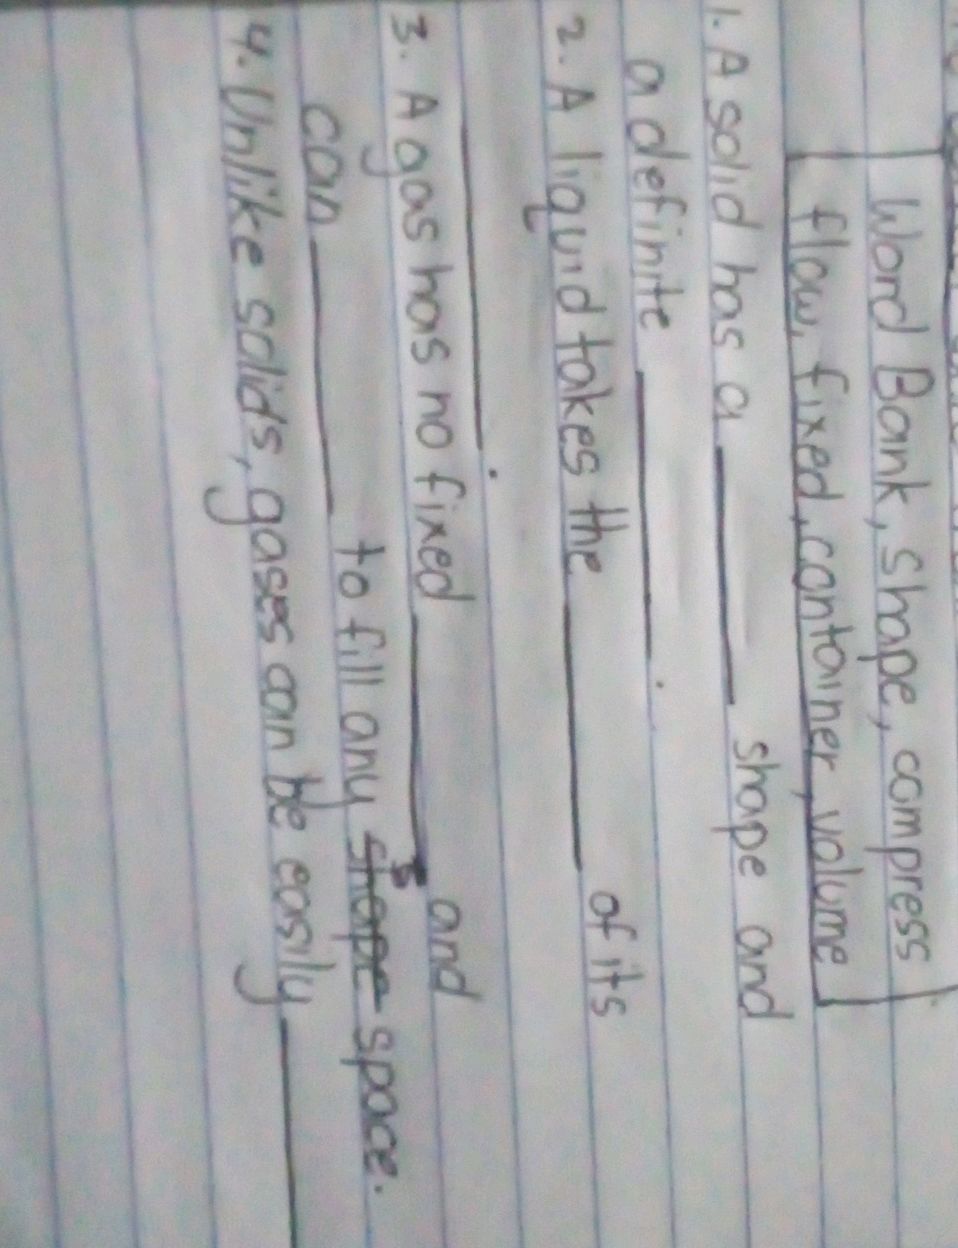 Word Bank, shape, compress
flow, fixed, container, volume
1. A solid has a ______ shape and
a definite ______.
2. A liquid takes the ______ of its
______.
3. A gas has no fixed ______ and
can ______ to fill any shape space.
4. Unlike solids, gases can be easily ______